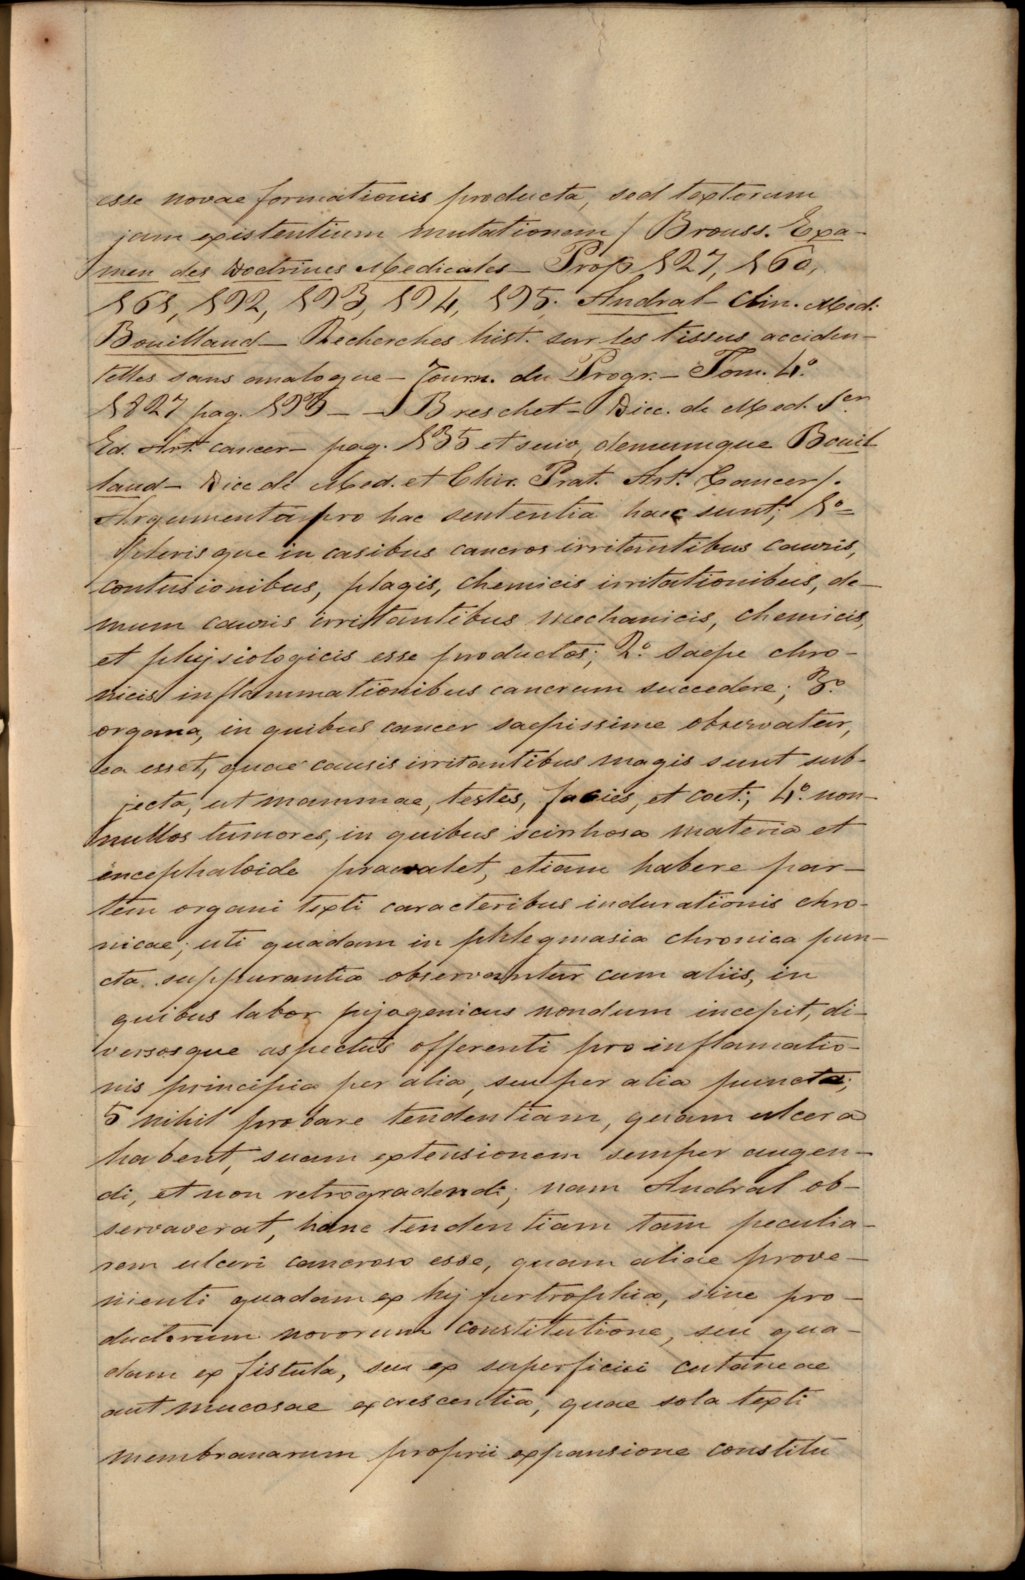 esse novae formationis producta, sed textorum
jam existentium mutationem / Brouss. Exa-
men des Doctrines Medicales - Prop 127, 160,
161, 192, 193, 194, 195. Andral - Clin. Med.
Bouillaud - Recherches hist. sur les tissus acciden-
telles sans analogue - Journ. du Progr. - Tom. 4.º
1827 pag. 193 - - J Breschet - Dicc. de Med. 1.er
Ed. Art. cancer - pag. 135 et suiv, demumque Bouil
laud - Dicc de Med. et Chir. Prat. Art. Cancer /.
Argumenta pro hac sententia haec sunt; 1º =
Plerisque in casibus cancros irritantibus causis,
contusionibus, plagis, chemicis irritationibus, de-
mum causis irritantibus mechanicis, chemicis,
et physiologicis esse productos; 2.º saepe chro-
nicis inflammationibus cancrum succedere; 3.º
organa, in quibus cancer saepissime observatur,
ea esset, quae causis irritantibus magis sunt sub-
jecta, ut mammae, testes, facies, et coet.; 4.º non-
nullos tumores, in quibus scirrhosa materia et
encephaloide praevalet, etiam habere par-
tem organi texti caracteribus indurationis chro-
nicae; uti quadam in phlegmasia chronica pun-
cta suppurantia observantur cum aliis, in
quibus labor pijogenicus nondum incepit, di-
versosque aspectus offerenti pro inflamatio-
nis principia per alia, seu per alia puncta;
5 nihil probare tendentiam, quam ulcera
habent, suam extensionem semper augen-
di, et non retrogradendi; nam Andral ob-
servaverat, hanc tendentiam tam peculia-
rem ulceri canceroso esse, quam aliae prove-
nienti quadam ex hijpertrophia, sine pro-
ductorum novorum constitutione, seu qua-
dam ex fistula, seu ex superficiei cutaneae
aut mucosae excrescentia, quae sola texti
membranarum proprii expansione constitu